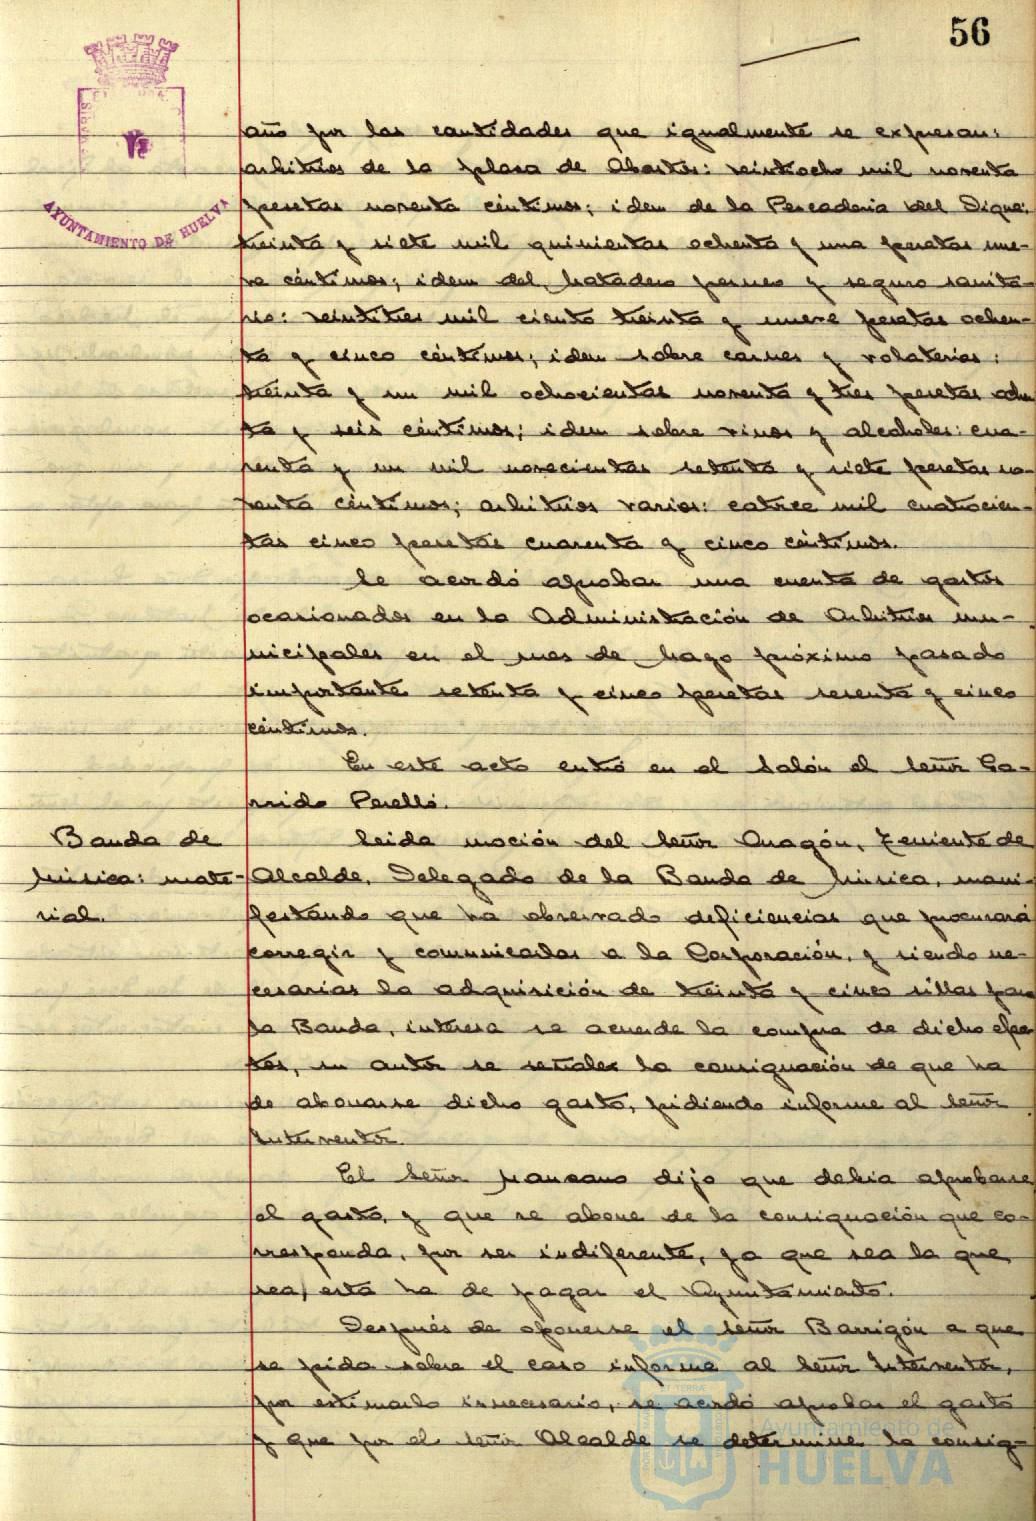 56
AYUNTAMIENTO DE HUELVA
año por las cantidades que igualmente se expresan:
arbitrios de la plaza de Abastos: veintiocho mil noventa
pesetas noventa céntimos; idem de la Pescaderia del Dique:
treinta y siete mil quinientas ochenta y una pesetas nue-
ve céntimos; idem del Matadero perneo y seguro sanita-
rio: veintitres mil ciento treinta y nueve pesetas ochen-
ta y cinco céntimos; idem sobre carnes y volaterias:
treinta y un mil ochocientas noventa y tres pesetas ochen
ta y seis céntimos; idem sobre vinos y alcoholes: cua-
renta y un mil novecientas setenta y siete pesetas no-
venta céntimos; arbitrios varios: catorce mil cuatrocien-
tas cinco pesetas cuarenta y cinco céntimos.
Se acordó aprobar una cuenta de gastos
ocasionados en la Administración de Arbitrios mu-
nicipales en el mes de Mayo próximo pasado
importante setenta y cinco pesetas sesenta y cinco
céntimos.
En este acto entró en el Salón el Señor Ga-
rrido Perelló.
Banda de
Música: mate-
rial.
Leida moción del Señor Aragón, Teniente de
Alcalde, Delegado de la Banda de Música, mani-
festando que ha observado deficiencias que procurará
corregir y comunicarlas a la Corporación, y siendo ne-
cesarias la adquisición de treinta y cinco sillas para
la Banda, interesa se acuerde la compra de dicho efec-
tos, su autor se señales la consignación de que ha
de abonarse dicho gasto, pidiendo informe al Señor
Interventor.
El Señor Manzano dijo que debia aprobarse
el gasto, y que se abone de la consignación que co-
rresponda, por ser indiferente, ya que sea la que
sea, esta ha de pagar el Ayuntamiento.
Después de oponerse el Señor Barrigón a que
se pida sobre el caso informe al Señor Interventor,
por estimarlo innecesario, se acordó aprobar el gasto
y que por el Señor Alcalde se determine la consig-
Ayuntamiento de
HUELVA